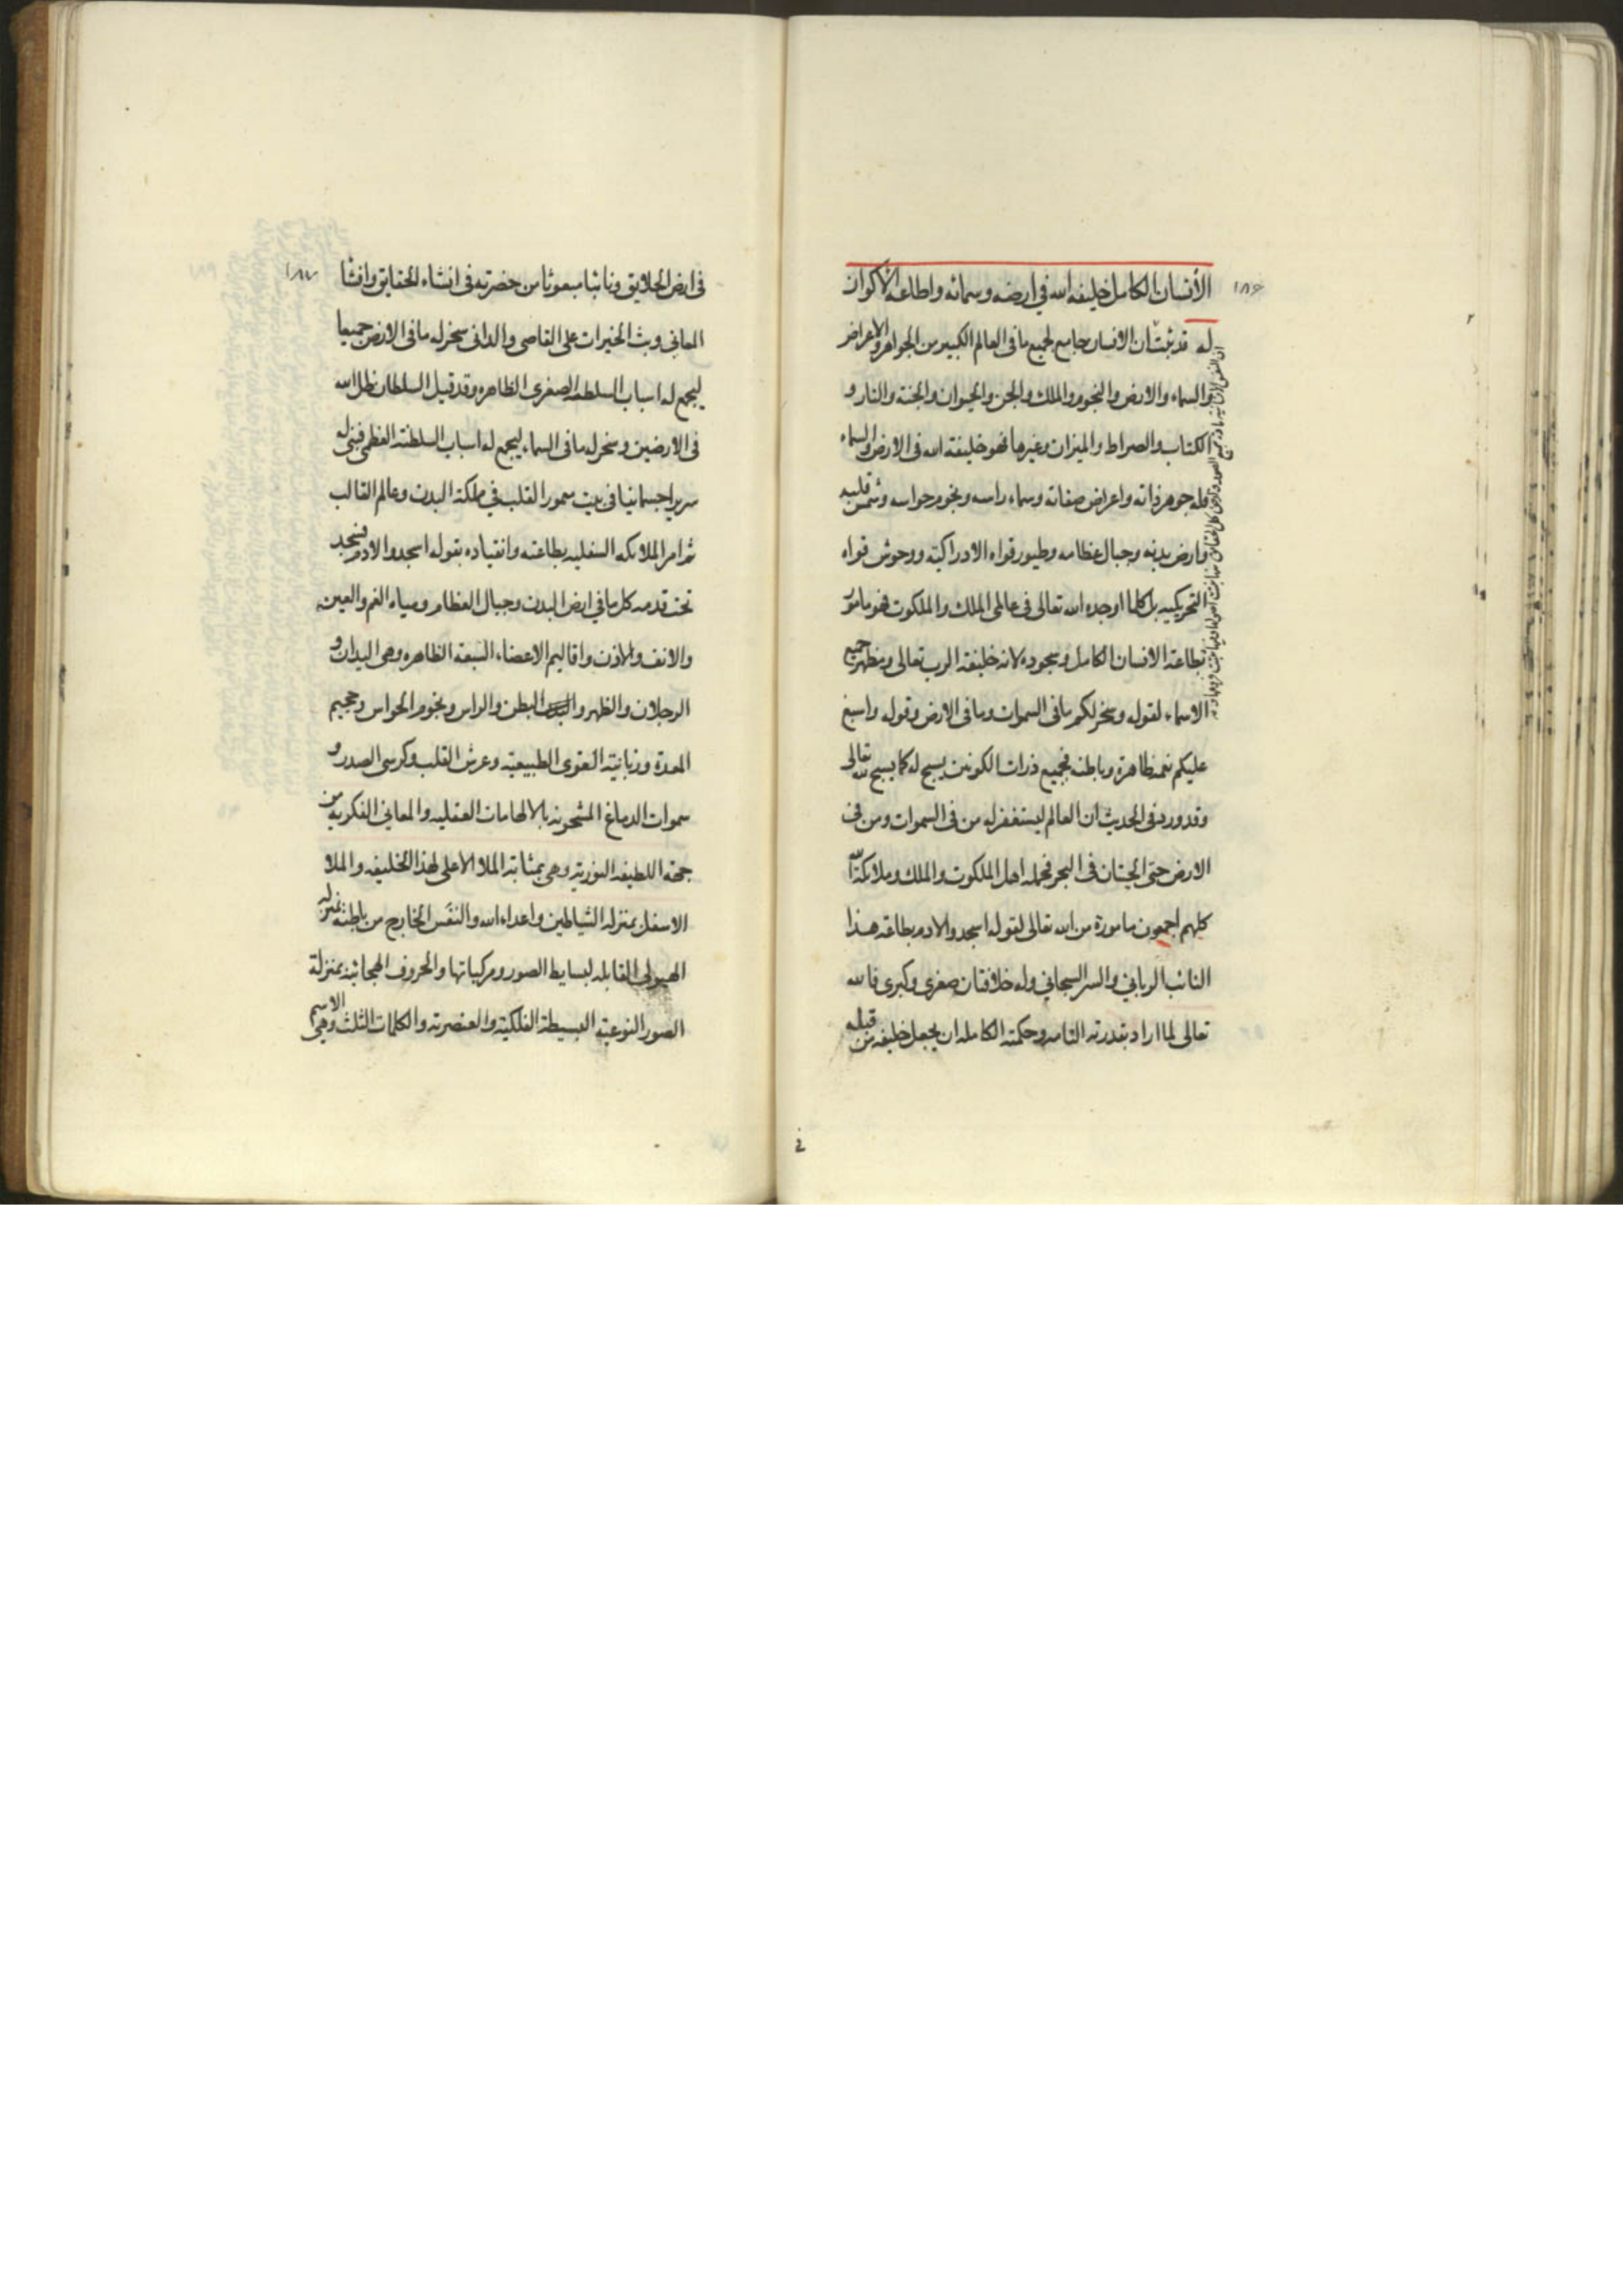 ١٨٦
الأنسان الكامل خليفه الله في ارضه وسمائه واطاعه الأكوان
له قد ثبت ان الانسان جامع لجميع ما فى العالم الكبير من الجواهر والاعراض
والسماء والارض والنجوم والملك والجن والحيوان والجنة والنار و
الكتاب والصراط والميزان وغيرها فهو خليفة الله فى الارض والسماء
فله جوهر ذاته واعراض صفاته وسماء راسه ونجوم حواسه وشمس قلبه
وارض بدنه وجبال عظامه وطيور قواه الادراكية ووحوش قواه
التحريكيه بل كلما اوجده الله تعالى فى عالمى الملك والملكوت فهو مامور
بطاعة الانسان الكامل وسجوده لانه خليفة الرب تعالى ومظهر جميع
الاسماء لقوله وسخر لكم ما فى السموات وما فى الارض وقوله واسبغ
عليكم نعمه ظاهرة وباطنه فجميع ذرات الكونين يسبح له كما يسبح لله تعالى
وقد ورد فى الحديث ان العالم ليستغفر له من فى السموات ومن فى
الارض حتى الحيتان فى البحر فجمله اهل الملكوت والملك وملائكة الله
كلهم اجمعون مامورة من الله تعالى لقوله اسجدوا لادم بطاعة هذا
النائب الرباني والسر السبحاني وله خلافتان صغرى وكبرى فالله
تعالى لما اراد بقدرته التامه وحكمته الكامله ان يجعل خليفه من قبله
فى
١٨٧
فى ارض الخلايق ونائبا مبعوثا من حضرته فى انشاء الحقايق وافشا
المعانى وبث الخيرات على القاصى والدانى سخر له ما فى الارض جميعا
ليجمع له اسباب السلطنه الصغرى الظاهره وقد قيل السلطان ظل الله
فى الارضين وسخر له ما فى السماء ليجمع له اسباب السلطنة العظمى فبنى له
سريرا جسمانيا فى بيت معمور القلب فى مملكة البدن وعالم القالب
ثم امر الملائكه السفليه بطاعته وانقياده بقوله اسجدوا لادم فسجد
تحت قدمه كل ما فى ارض البدن وجبال العظام ومياه الفم والعين
والانف والاذن واقاليم الاعضاء السبعة الظاهره وهى اليدان و
الرجلان والظهر والبطن والراس ونجوم الحواس وجحيم
المعدة وزبانية القوى الطبيعية وعرش القلب وكرسى الصدر و
سموات الدماغ المشحونه بالالهامات العقليه والمعانى الفكريه من
جهة اللطيفه النورية وهى بمثابة الملا الاعلى لهذا الخليفه والملا
الاسفل بمنزله الشياطين واعداء الله والنفس الخارج من باطنه بمنزله
الهيولى القابله لبسايط الصور ومركباتها والحروف الهجائية بمنزلة
الصور النوعية البسيطة الفلكية والعنصرية والكلمات الثلث وهى الاسم